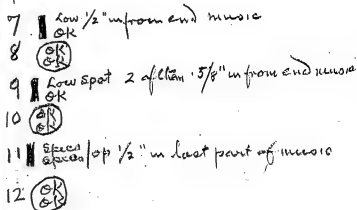 7 Low 1/2" in from end music
OK
8 OK
OK
9 Low spot 2 of them 5/8" in from end music
OK
10 OK
OK
11 Specs /op 1/2" in last part of music
Specs
12 OK
OK